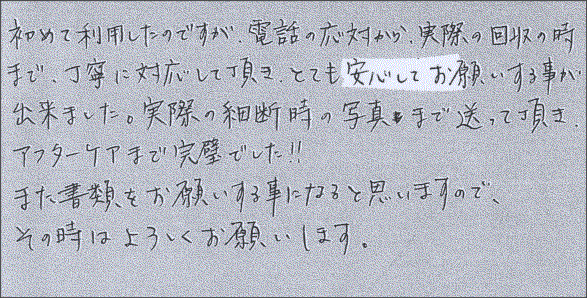 初めて利用したのですが、電話の応対から、実際の回収の時
まで、丁寧に対応して頂き、とても安心してお願いする事が
出来ました。実際の細断時の写真まで送って頂き、
アフターケアまで完璧でした!!
また書類をお願いする事になると思いますので、
その時はよろしくお願いします。